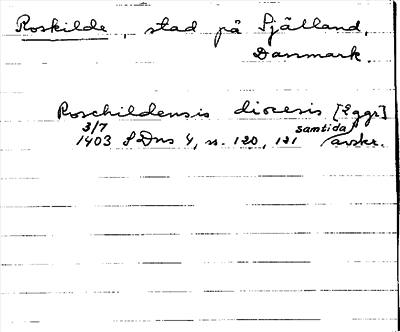 Roskilde, stad på Själland,
Danmark.
Roschildensis diocesis [2 ggr]
3/7
1403 SDns 4, n. 120, 121 samtida avskr.